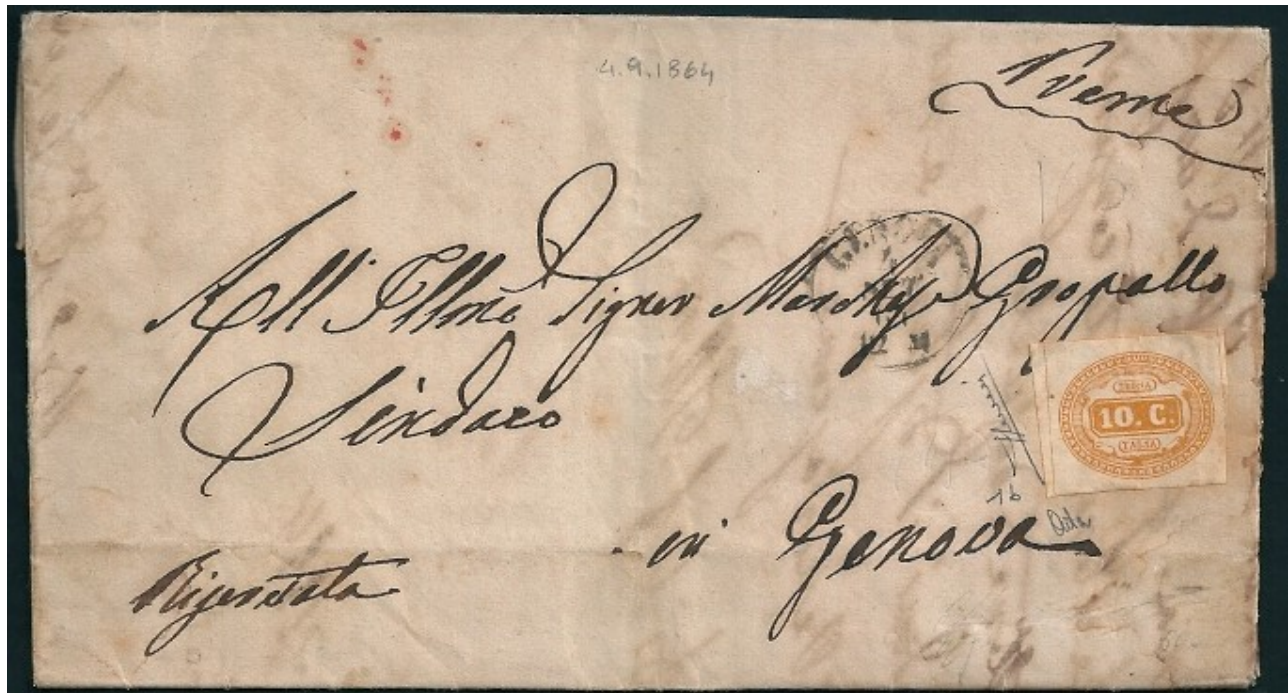 4.9.1864
Preme
All' Illmo Signor Marchese Gropallo
Sindaco
TASSA
10. C.
TASSA
16
in Genova
Riservata